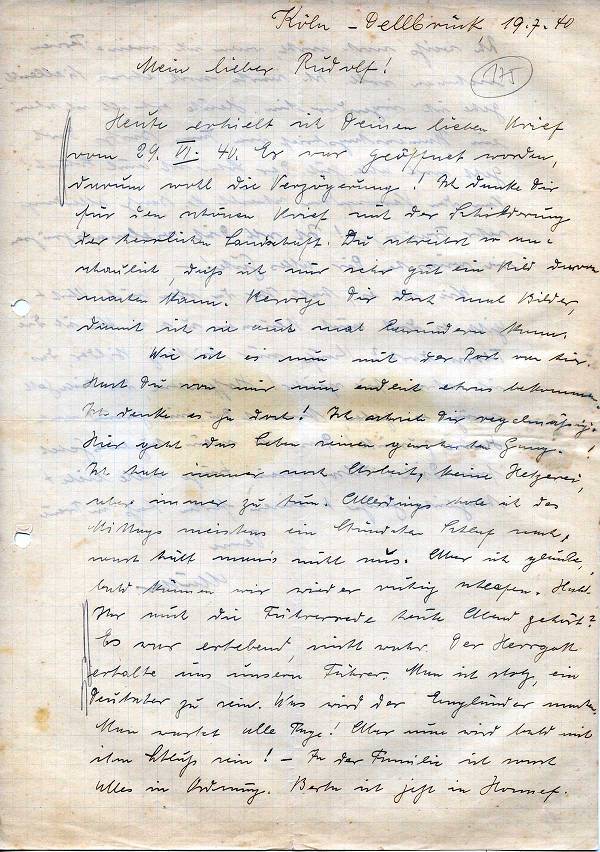 Köln - Dellbrück 19.7.40
Mein lieber Rudolf!
175
Heute erhielt ich Deinen lieben Brief
vom 29. VI. 40. Er war geöffnet worden,
darum wohl die Verzögerung! Ich danke Dir
für den schönen Brief mit der Schilderung
der herrlichen Landschaft. Du schreibst so an-
schaulich, daß ich mir sehr gut ein Bild davon
machen kann. Besorge Dir doch mal Bilder,
damit ich sie auch mal bewundern kann.
Wie ist es nun mit der Post von hier.
Hast Du von mir nun endlich etwas bekommen.
Ich denke es ja doch! Ich schreib Dir regelmässig.
Hier geht das Leben seinen gewohnten Gang.
Ich habe immer noch Arbeit, keine Hetzerei,
aber immer zu tun. Allerdings hole ich des
Mittags meistens ein Stündchen Schlaf nach,
sonst hält man's nicht aus. Aber ich glaube,
bald können wir wieder ruhig schlafen. Habt
Ihr auch die Führerrede heute Abend gehört?
Es war erhebend, nicht wahr. Der Herrgott
erhalte uns unseren Führer. Man ist stolz, ein
Deutscher zu sein. Was wird der Engländer machen.
Man wartet alle Tage! Aber nun wird bald mit
ihm Schluß sein! - In der Familie ist noch
alles in Ordnung. Berta ist jetzt in Honnef.